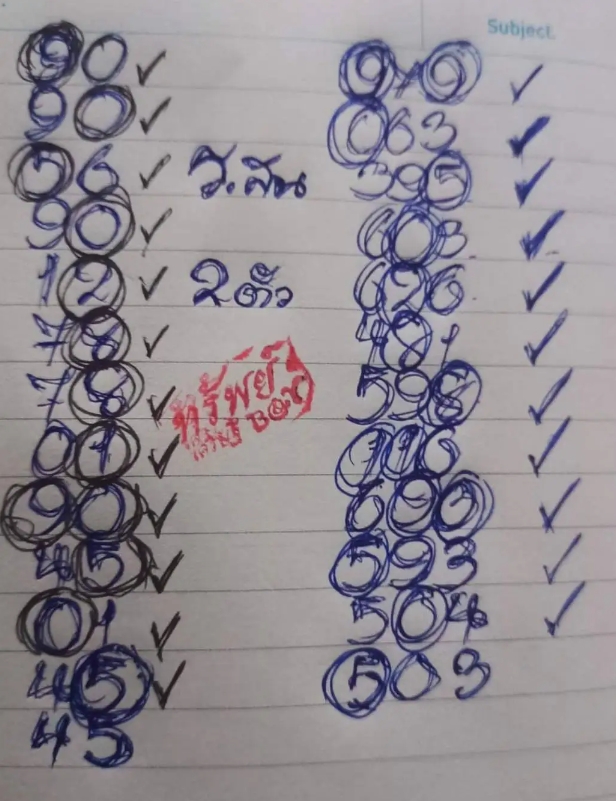 Subject
90 ✓ 949 ✓
90 ✓ 063 ✓
56 ✓ ว.สัน 395 ✓
90 ✓ 603 ✓
12 ✓ 2 ตัว 626 ✓
78 ✓ 481 ✓
78 ✓ ทรัพย์ 598 ✓
01 ✓ BOY 116 ✓
90 ✓ 690 ✓
45 ✓ 593 ✓
01 ✓ 504 ✓
45 ✓ 503
45